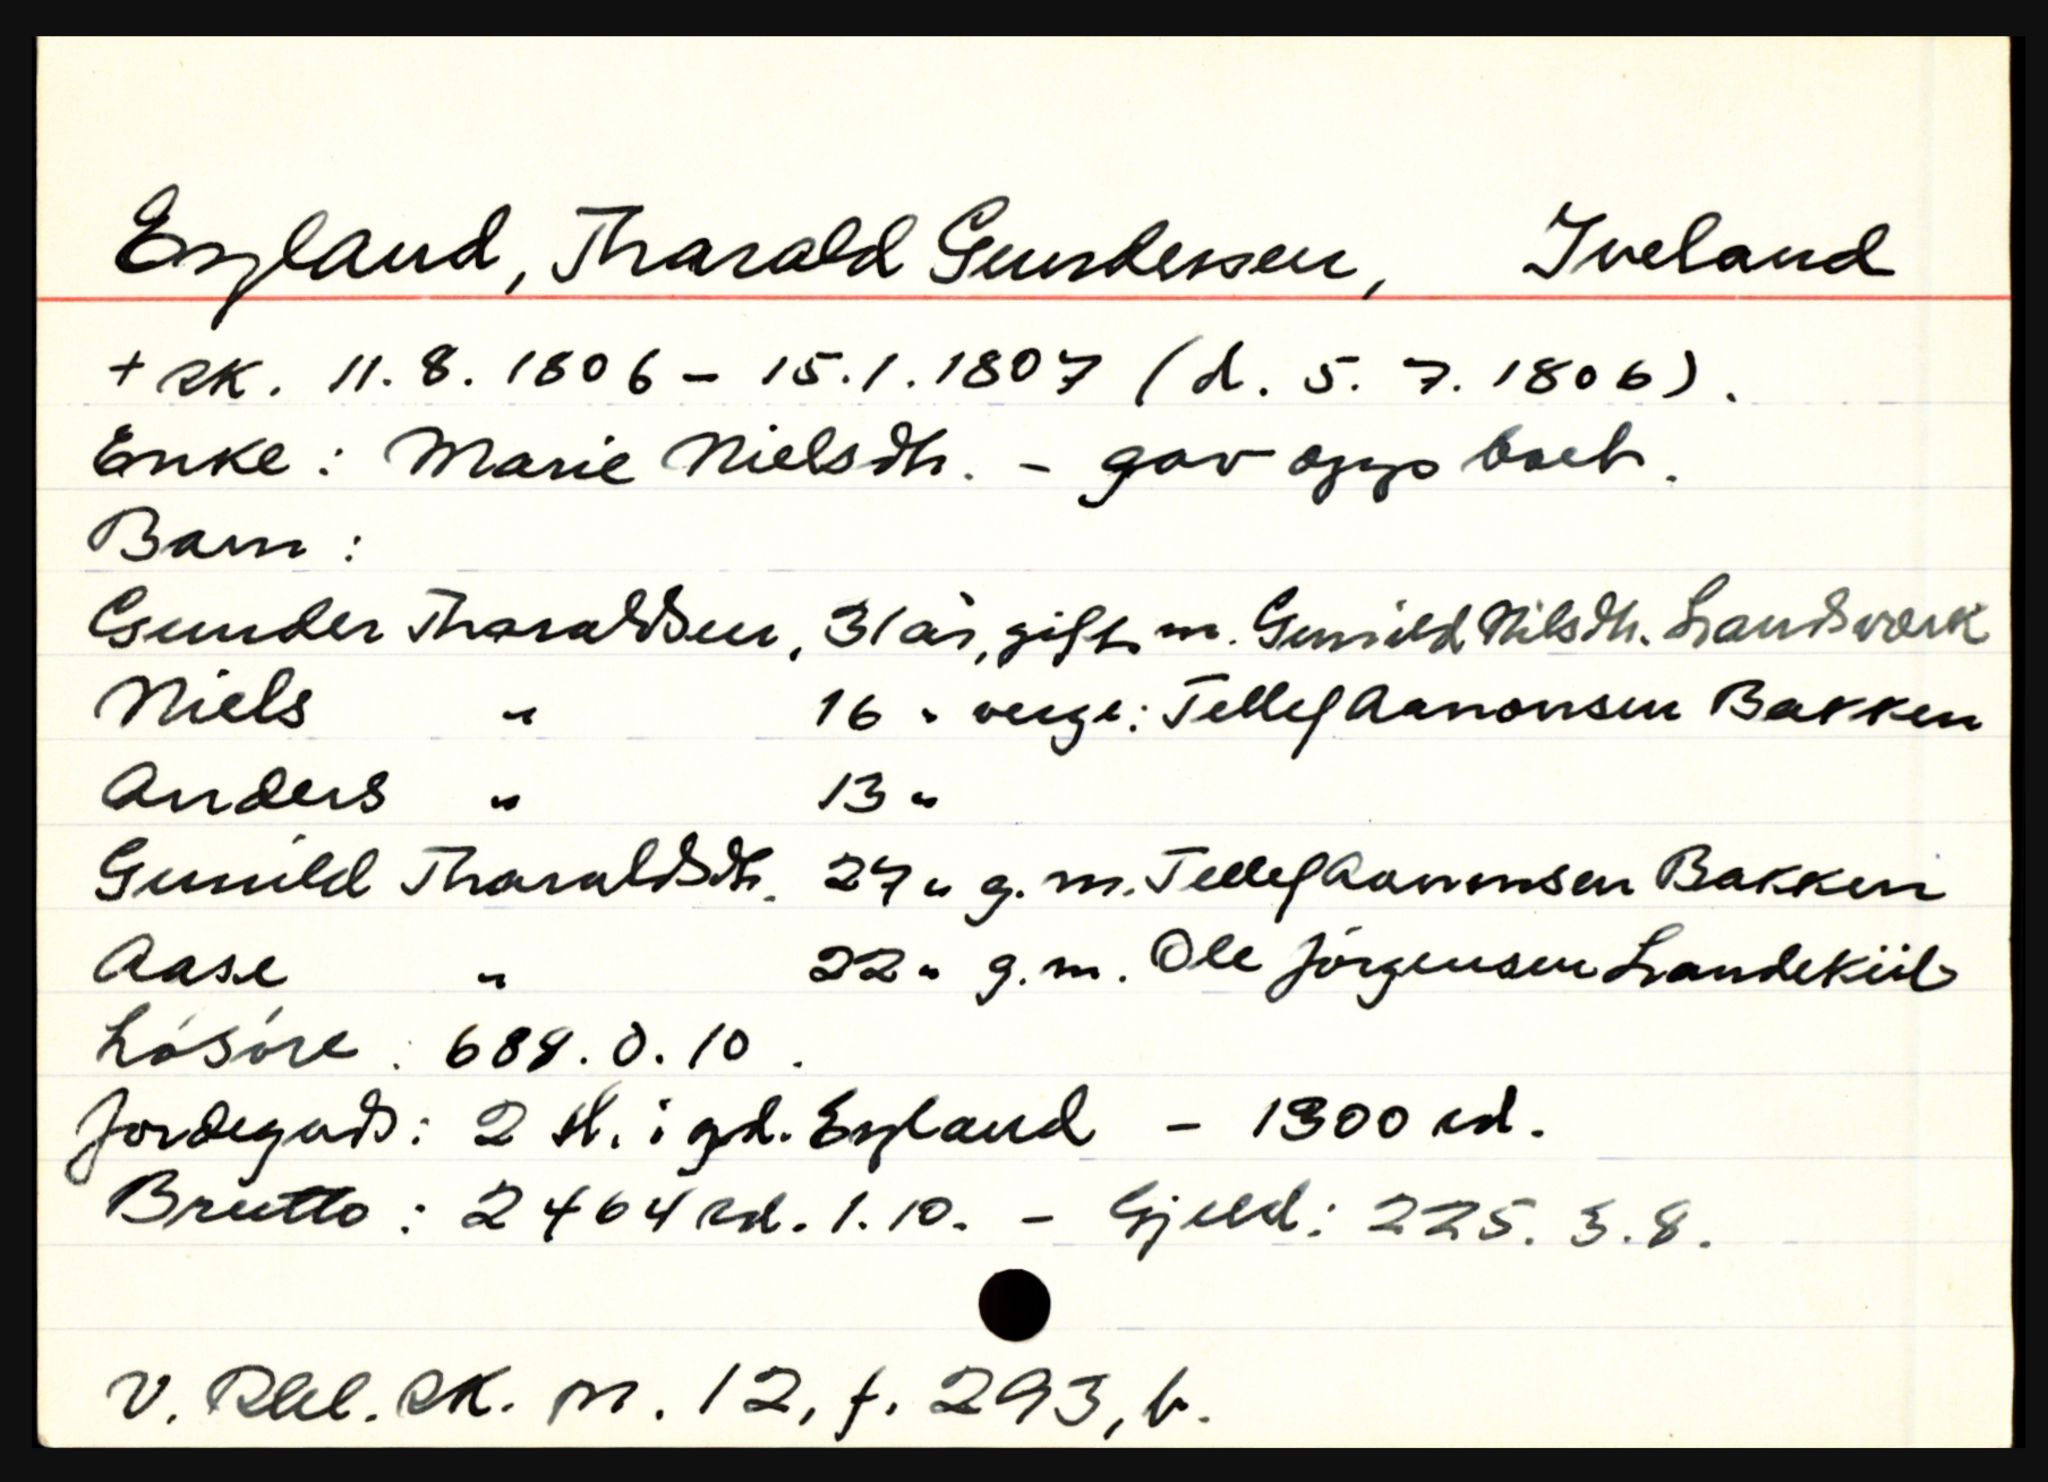 Eegland, Tharald Gundersen, Iveland
+ sk. 11.8.1806 - 15.1.1807 (d. 5.7.1806).
Enke: Marie Nielsdtr. - gav opp boet.
Barn:
Gunder Tharaldsen, 31 år, gift m. Gunild Nilsdtr. Landsverk
Niels " 16 " verge: Tellef Aanonsen Bakken
Anders " 13 "
Gunild Tharaldsdtr. 27 " g. m. Tellef Aanonsen Bakken
Aase " 22 " g. m. Ole Jörgensen Landekiil
Lösöre: 689.0.10.
Jordegods: 2 sl. i gd. Eegland - 1300 rd.
Brutto: 2464 rd. 1.10. - Gjeld: 225.3.8.
V. Rbl. sk. nr. 12, f. 293, b.